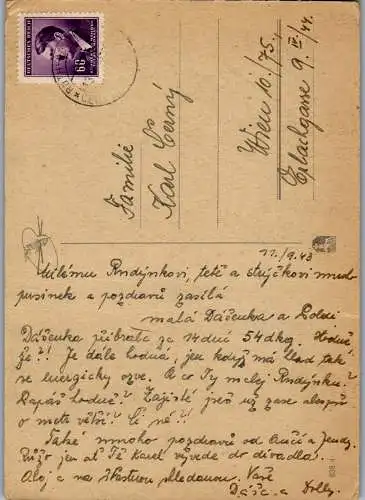 DEUTSCHES REICH
60
Familie
Karl Černý
Wien 10/75.
Erlachgasse 9. II/44.
11./9.43
Milému Rudýnkovi, tetě a strýčkovi mnoho
pusinek a pozdravů zasílá
malá Dášenka a Poldi
Dášenka přibrala za 14 dní 54 dkg. Hodně
že?! Je dále hodná, jen když má hlad tak
se energicky ozve. A co Ty milej Rudýnku?
Papáš hodně? Zajisté jseš už zase alespoň
o metr větší? Či ne?!
Také mnoho pozdravů od
ať Tě Karel vyvede do divadla.
Ahoj a na šťastnou shledanou. Vaše
Dáša a